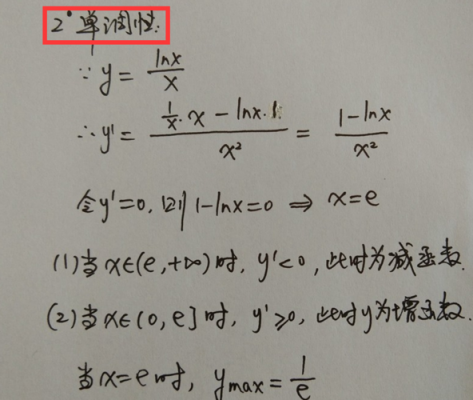 2° 单调性:
∵ y = lnx/x
∴ y' = (1/x · x − lnx · 1)/x² = (1−lnx)/x²
令y'=0, 则 1−lnx=0 ⇒ x=e
(1)当 x∈(e,+∞)时, y'<0, 此时为减函数.
(2)当x∈(0,e]时, y'≥0, 此时y为增函数.
当x=e时, ymax = 1/e